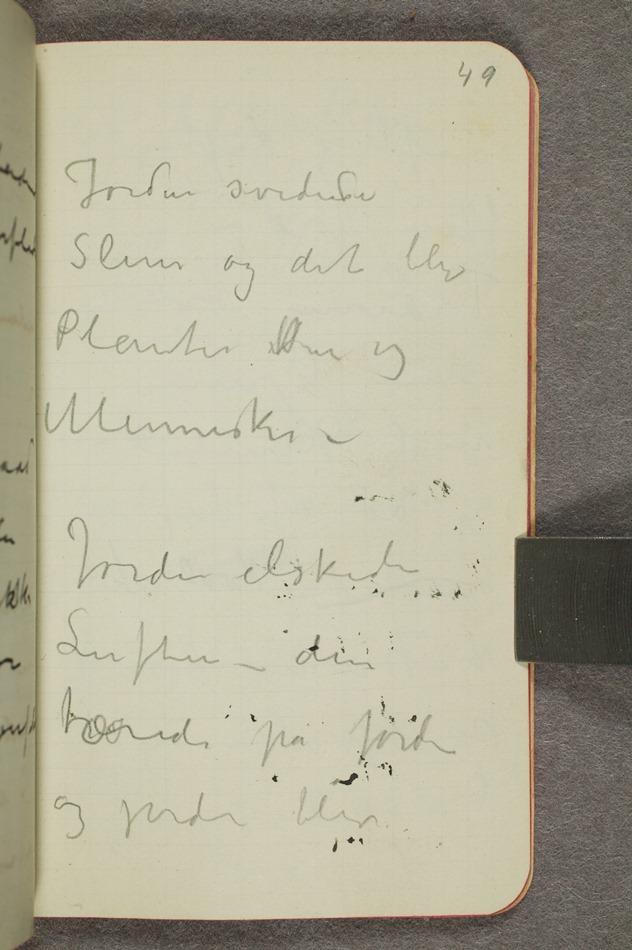 49
Jorden svedede
Sliim og det blev
Planter Dyr og
Mennesker –
Jorden elskede
Luften – den
tærede på jorden
og jorden blev